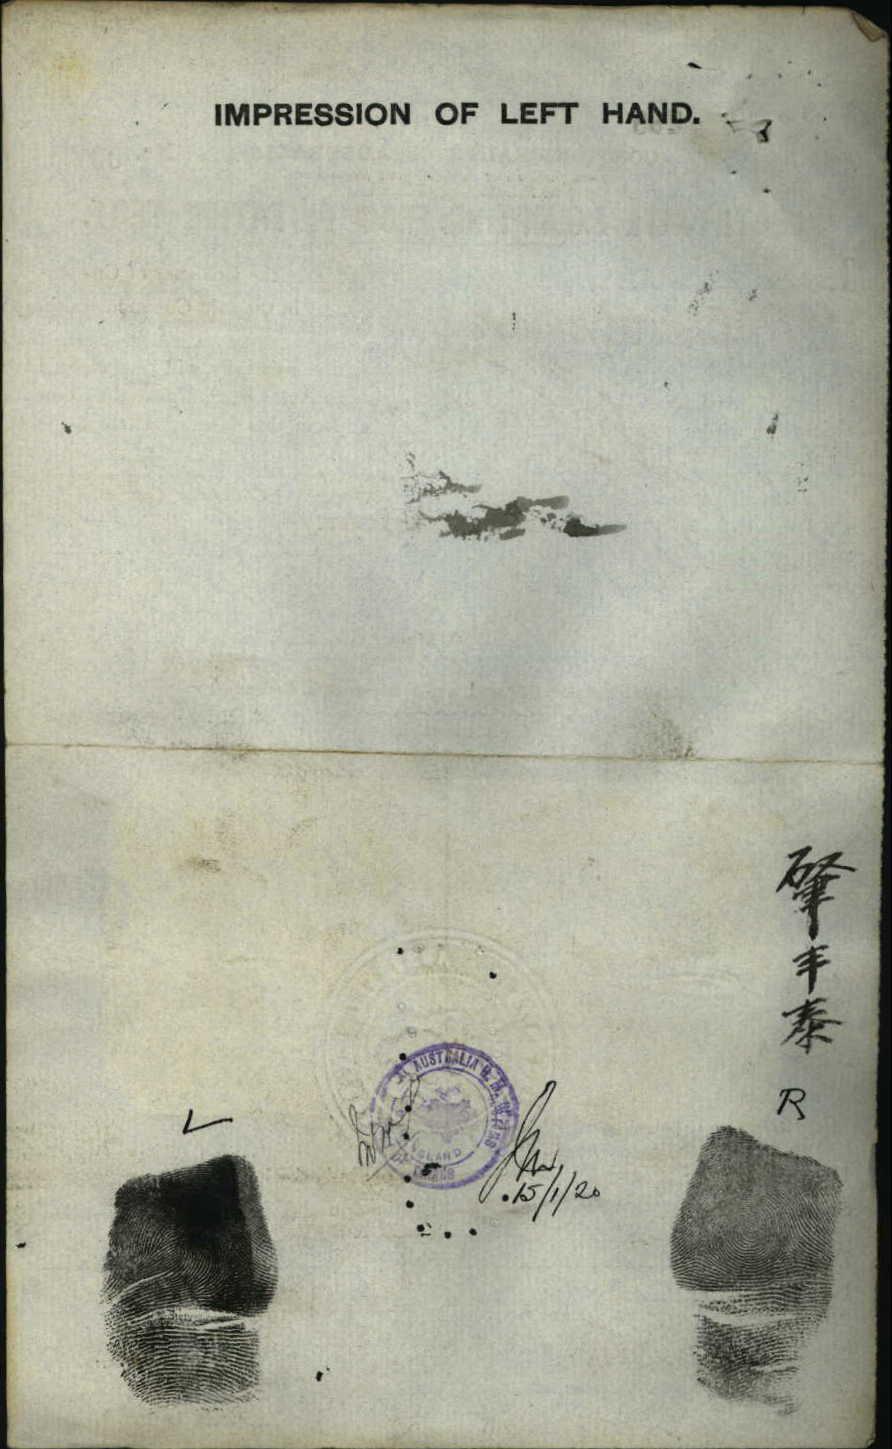 IMPRESSION OF LEFT HAND.
肇丰泰
L
R
AUSTRALIA
ISLAND
15/1/20